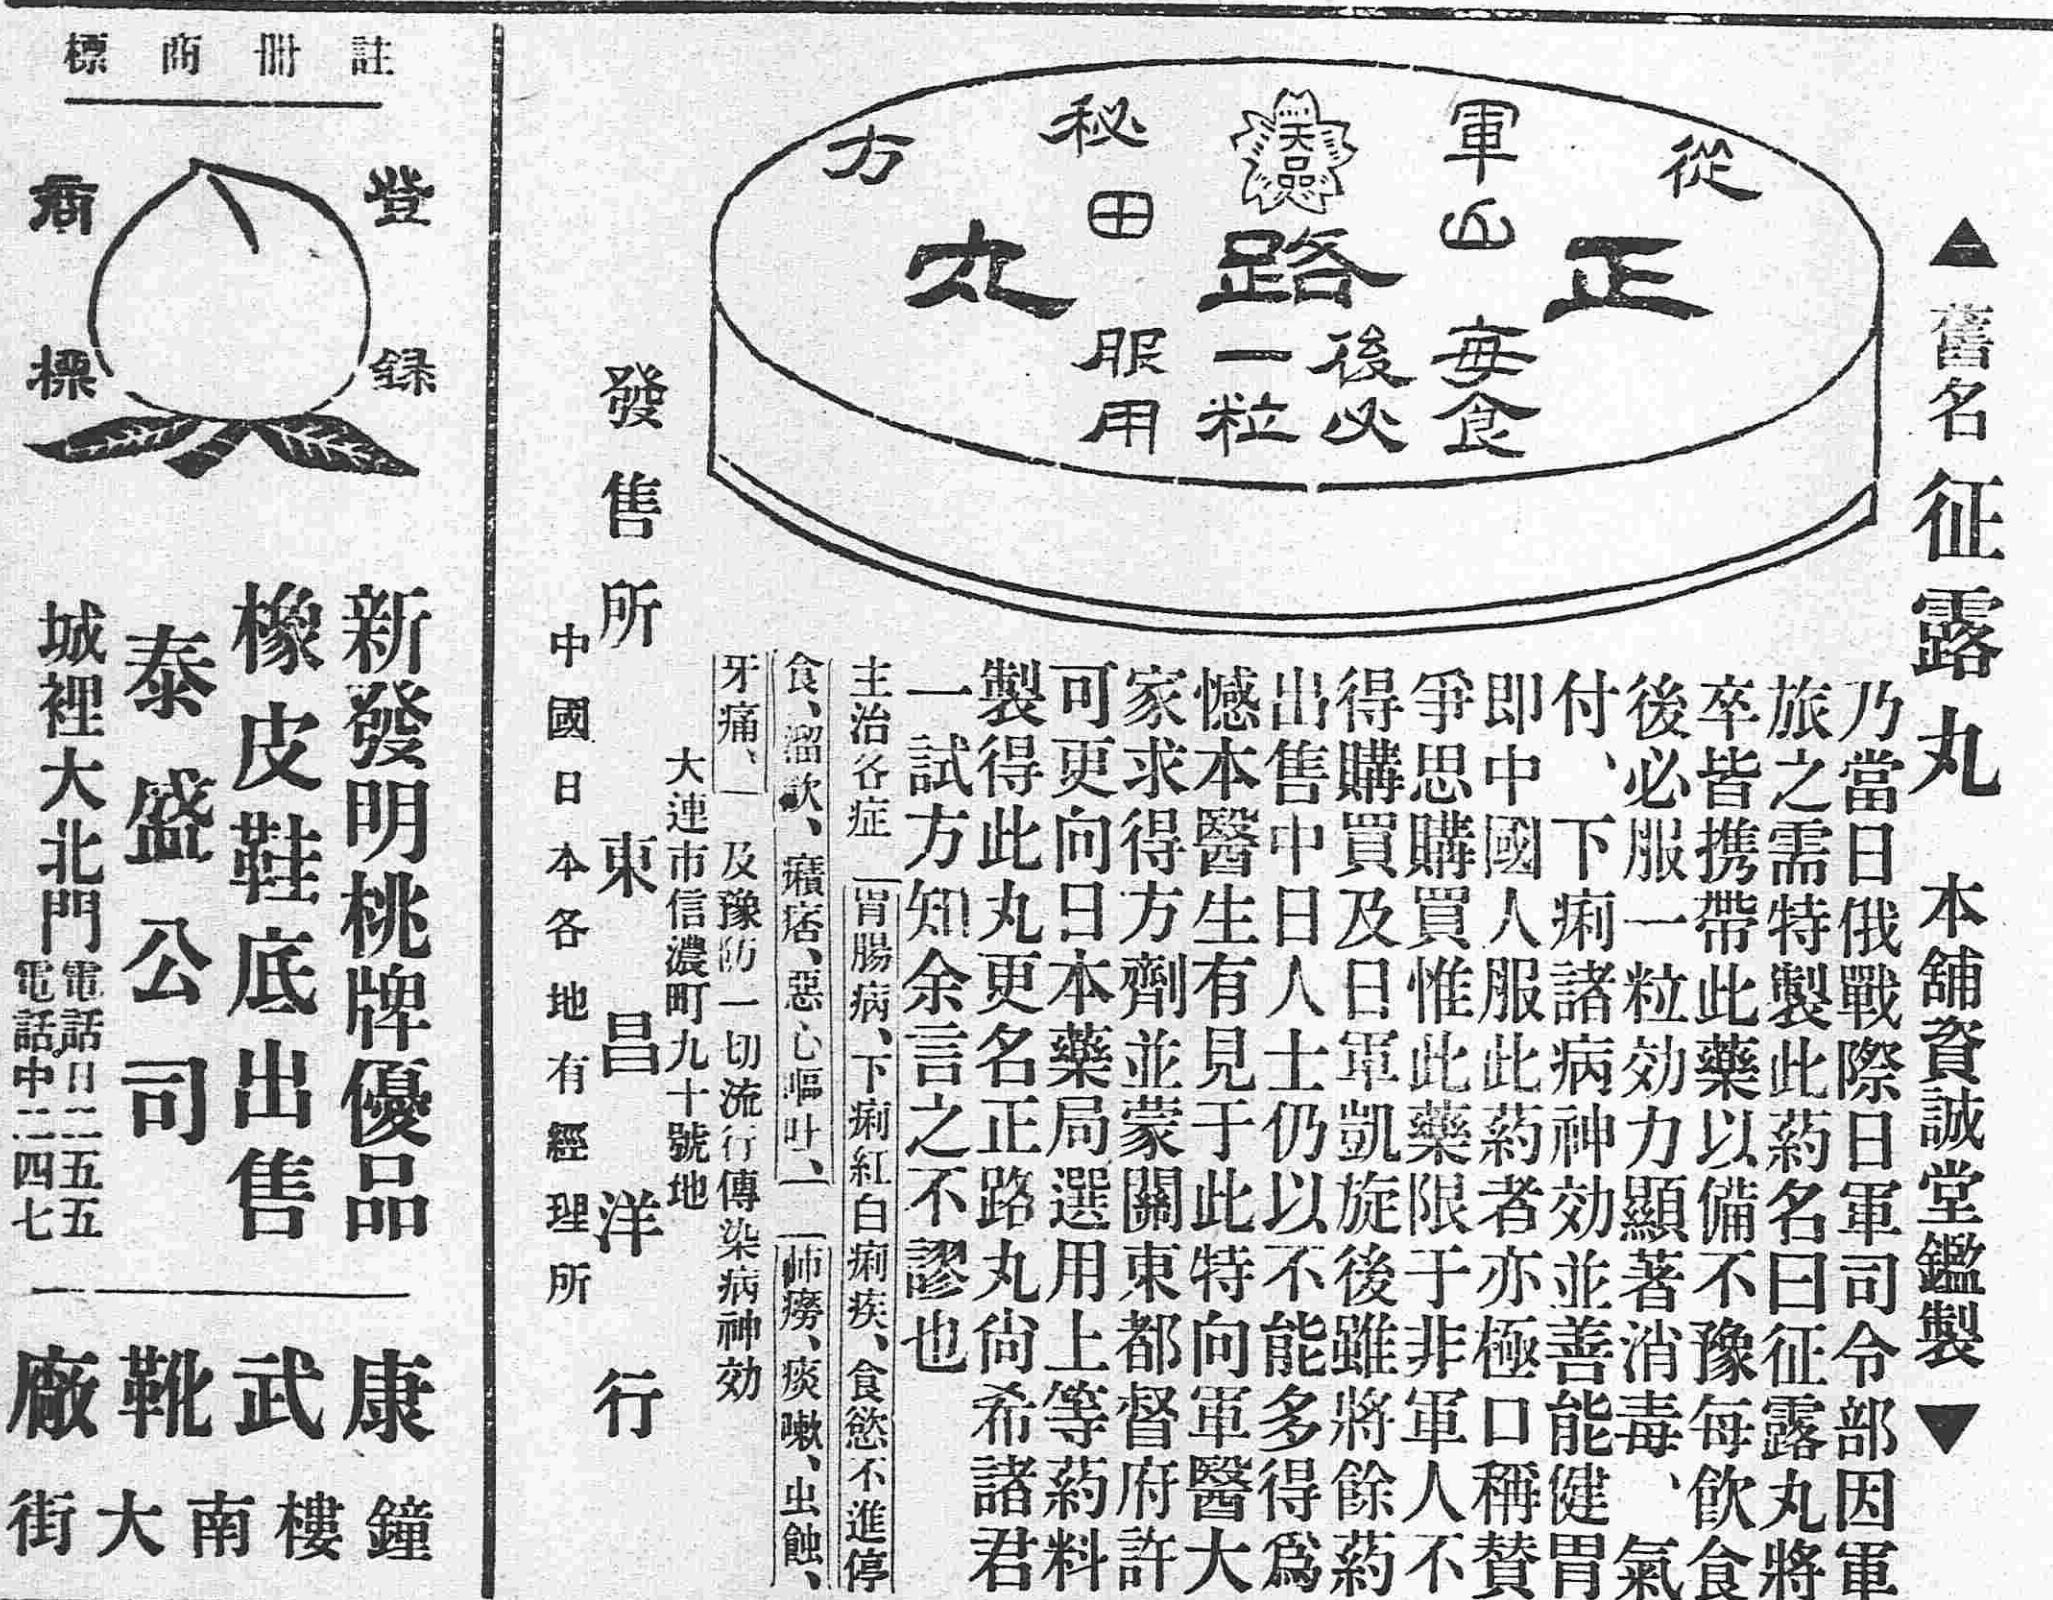 ▲舊名征露丸 本舖資誠堂鑑製▼
從軍秘方
天品
山田
正路丸
每食
後必
一粒
服用
乃當日俄戰際日軍司令部因軍
旅之需特製此葯名曰征露丸將
卒皆携帶此藥以備不豫每飲食
後必服一粒効力顯著消毒、氣
付、下痢諸病神効並善能健胃
即中國人服此葯者亦極口稱賛
爭思購買惟此藥限于非軍人不
得購買及日軍凱旋後雖將餘葯
出售中日人士仍以不能多得爲
憾本醫生有見于此特向軍醫大
家求得方劑並蒙關東都督府許
可更向日本藥局選用上等葯料
製得此丸更名正路丸尙希諸君
一試方知余言之不謬也
主治各症 胃腸病、下痢紅白痢疾、食慾不進停
食、溜飲、癪痞、惡心嘔吐、肺癆、痰嗽、虫蝕、
牙痛、及豫防一切流行傳染病神効
大連市信濃町九十號地
發售所 東昌洋行
中國日本各地有經理所
註冊商標
登錄
商標
新發明桃牌優品
橡皮鞋底出售
泰盛公司
城裡大北門
電話日二五五
電話中二四七
康武靴廠
鐘樓南大街